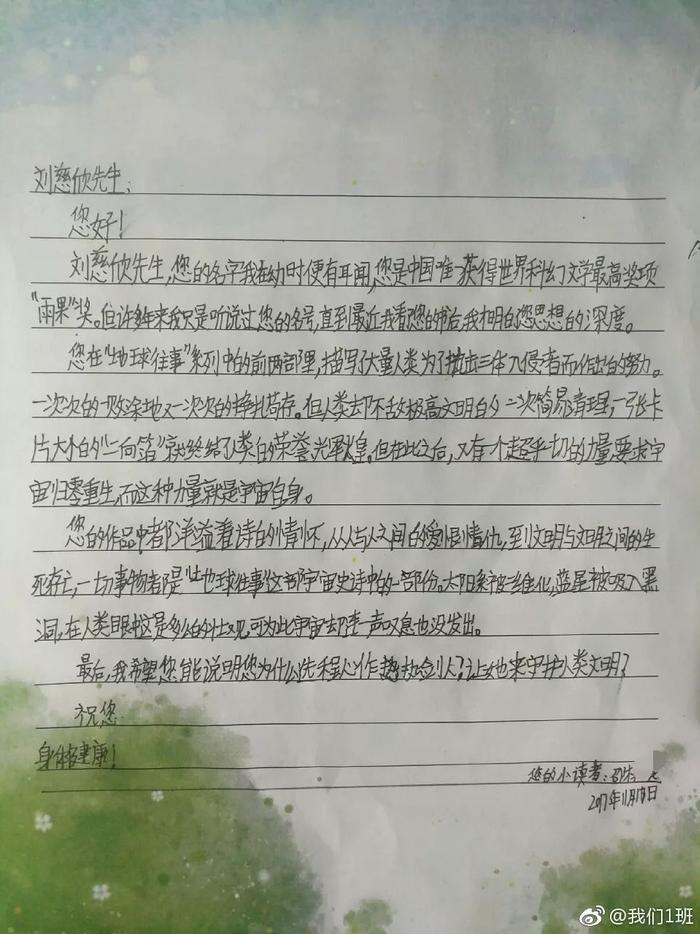 刘慈欣先生:
您好!
刘慈欣先生,您的名字我在幼时便有耳闻,您是中国唯一获得世界科幻文学最高奖项
"雨果"奖。但许多年来我只是听说过您的名号,直到最近我看您的书后,我才明白您思想的深度。
您在"地球往事"系列中的前两部里,描写了大量人类为了抗击三体入侵者而作出的努力。
一次次的一败涂地又一次次的挣扎苟存。但人类却不敌极高文明的一次简易清理,一张卡
片大小的"二向箔"就终结了人类的荣誉光辉。但在此之后,又有个超乎一切的力量要求宇
宙归零重生,而这种力量就是宇宙自身。
您的作品中都洋溢着诗的情怀,从人与人之间的爱恨情仇,到文明与文明之间的生
死存亡,一切事物都是"地球往事"这部宇宙史诗中的一部份。太阳系被二维化,蓝星被吸入黑
洞,在人类眼中这是多么的壮观,可为此宇宙却连一声叹息也没发出。
最后,我希望您能说明您为什么选程心作执剑人?让她来守护人类文明?
祝您
身体健康!
您的小读者:邵
2017年11月18日
@我们1班